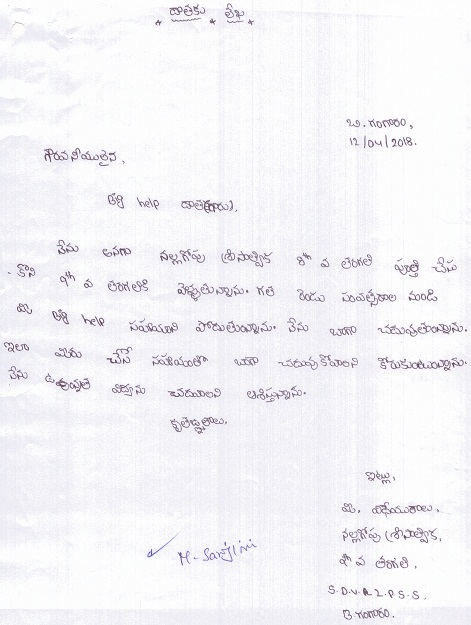 దాతకు లేఖ
బి. గంగారం,
12/04/2018.
గౌరవనీయులైన,
help దాత(గారు),
నేను అనగా నల్లగోపు శ్రీసాత్విక 8th వ తరగతి పూర్తి చేసు
కొని 9th వ తరగతికి వెళ్ళుతున్నాను. గత రెండు సంవత్సరాల నుండి
మీ help సహయాన్ని పొందుతున్నాను. నేను బాగా చదువుతున్నాను.
ఇలా మీరు చేసే సహయంతో బాగా చదువుకోవాలని కోరుకుంటున్నాను.
నేను ఉన్నత విద్యను చదవాలని ఆశిస్తున్నాను.
కృతజ్ఞతలు.
ఇట్లు,
మీ, విధేయురాలు,
నల్లగోపు శ్రీసాత్విక,
9th వ తరగతి,
M. Sarojini
S.D.V.R.Z.P.S.S.
B గంగారం.